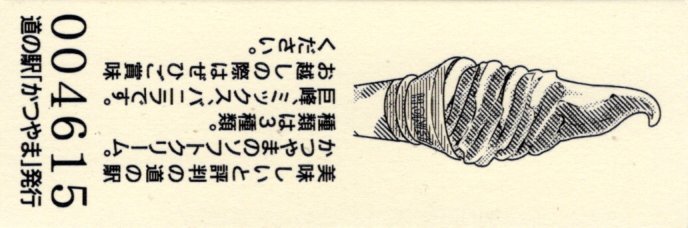 美味しいと評判の道の駅
かつやまのソフトクリーム。
種類は3種類。
巨峰、ミックス、バニラです。
お越しの際はぜひご賞味
ください。
004615
道の駅「かつやま」発行